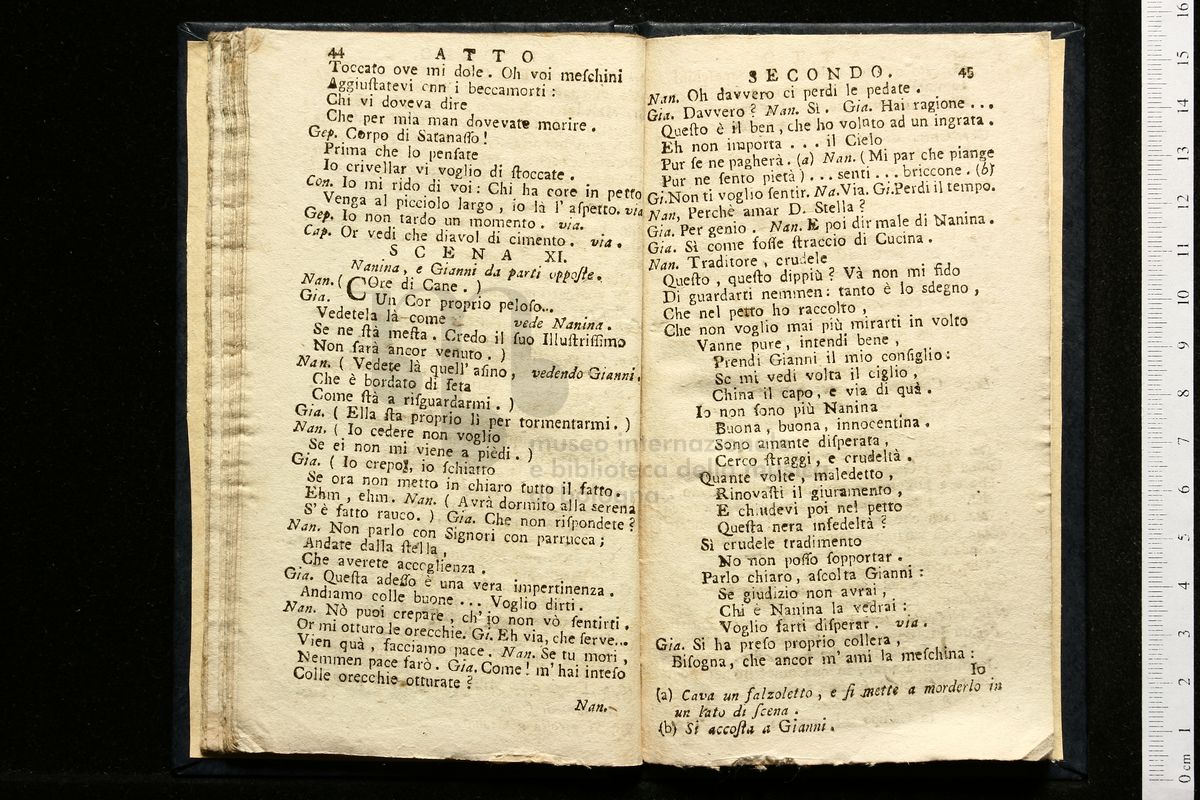 44 ATTO
Toccato ove mi dole. Oh voi meſchini
Aggiuſtatevi cnn i beccamorti:
Chi vi doveva dire
Che per mia man dovevate morire.
Gep. Corpo di Satanaſſo!
Prima che lo penſate
Io crivellar vi voglio di ſtoccate.
Con. Io mi rido di voi: Chi ha core in petto
Venga al picciolo largo, io là l'aſpetto. via
Gep. Io non tardo un momento. via.
Cap. Or vedi che diavol di cimento. via.
SCENA XI.
Nanina, e Gianni da parti oppoſte.
Nan. (COre di Cane.)
Gia. Un Cor proprio peloſo...
Vedetela là come vede Nanina.
Se ne ſtà meſta. Credo il ſuo Illuſtriſſimo
Non ſarà ancor venuto.)
Nan. (Vedete là quell'aſino, vedendo Gianni.
Che è bordato di ſeta
Come ſtà a riſguardarmi.)
Gia. (Ella ſta proprio lì per tormentarmi.)
Nan. (Io cedere non voglio
Se ei non mi viene a pièdi.)
Gia. (Io crepog, io ſchiatto
Se ora non metto in chiaro tutto il fatto.
Ehm, ehm. Nan. (Avrà dormito alla serena
S'è fatto rauco.) Gia. Che non riſpondete?
Nan. Non parlo con Signori con parrucca;
Andate dalla ſtella,
Che averete accoglienza.
Gia. Queſta adeſſo è una vera impertinenza.
Andiamo colle buone... Voglio dirti.
Nan. Nò puoi crepare, ch'io non vò ſentirti.
Or mi otturo le orecchie. Gi. Eh via, che ſerve...
Vien quà, facciamo pace. Nan. Se tu mori,
Nemmen pace farò. Gia. Come! m'hai inteſo
Colle orecchie otturate?
Nan.
SECONDO. 45
Nan. Oh davvero ci perdi le pedate.
Gia. Davvero? Nan. Sì. Gia. Hai ragione...
Queſto è il ben, che ho voluto ad un ingrata.
Eh non importa... il Cielo
Pur ſe ne pagherà. (a) Nan. (Mi par che piange
Pur ne ſento pietà)... senti... briccone. (b)
Gi. Non ti voglio ſentir. Na. Via. Gi. Perdi il tempo.
Nan, Perchè amar D. Stella?
Gia. Per genio. Nan. E poi dir male di Nanina.
Gia. Sì come foſſe ſtraccio di Cucina.
Nan. Traditore, crudele
Queſto, queſto dippiù? Và non mi fido
Di guardarti nemmen: tanto è lo sdegno,
Che nel petto ho raccolto,
Che non voglio mai più mirarti in volto
Vanne pure, intendi bene,
Prendi Gianni il mio conſiglio:
Se mi vedi volta il ciglio,
China il capo, e via di quà.
Io non ſono più Nanina
Buona, buona, innocentina.
Sono amante diſperata,
Cerco ſtraggi, e crudeltà.
Quante volte, maledetto,
Rinovaſti il giuramento,
E chiudevi poi nel petto
Queſta nera infedeltà?
Sì crudele tradimento
No non poſſo ſopportar.
Parlo chiaro, aſcolta Gianni:
Se giudizio non avrai,
Chi è Nanina la vedrai:
Voglio farti diſperar. via.
Gia. Si ha preſo proprio collera,
Biſogna, che ancor m'ami la meſchina:
Io
(a) Cava un falzoletto, e ſi mette a morderlo in
un lato di ſcena.
(b) Si accoſta a Gianni.
museo internazionale
e biblioteca della musica
di Bologna
16
15
14
13
12
11
10
9
8
7
6
5
4
3
2
1
0 cm